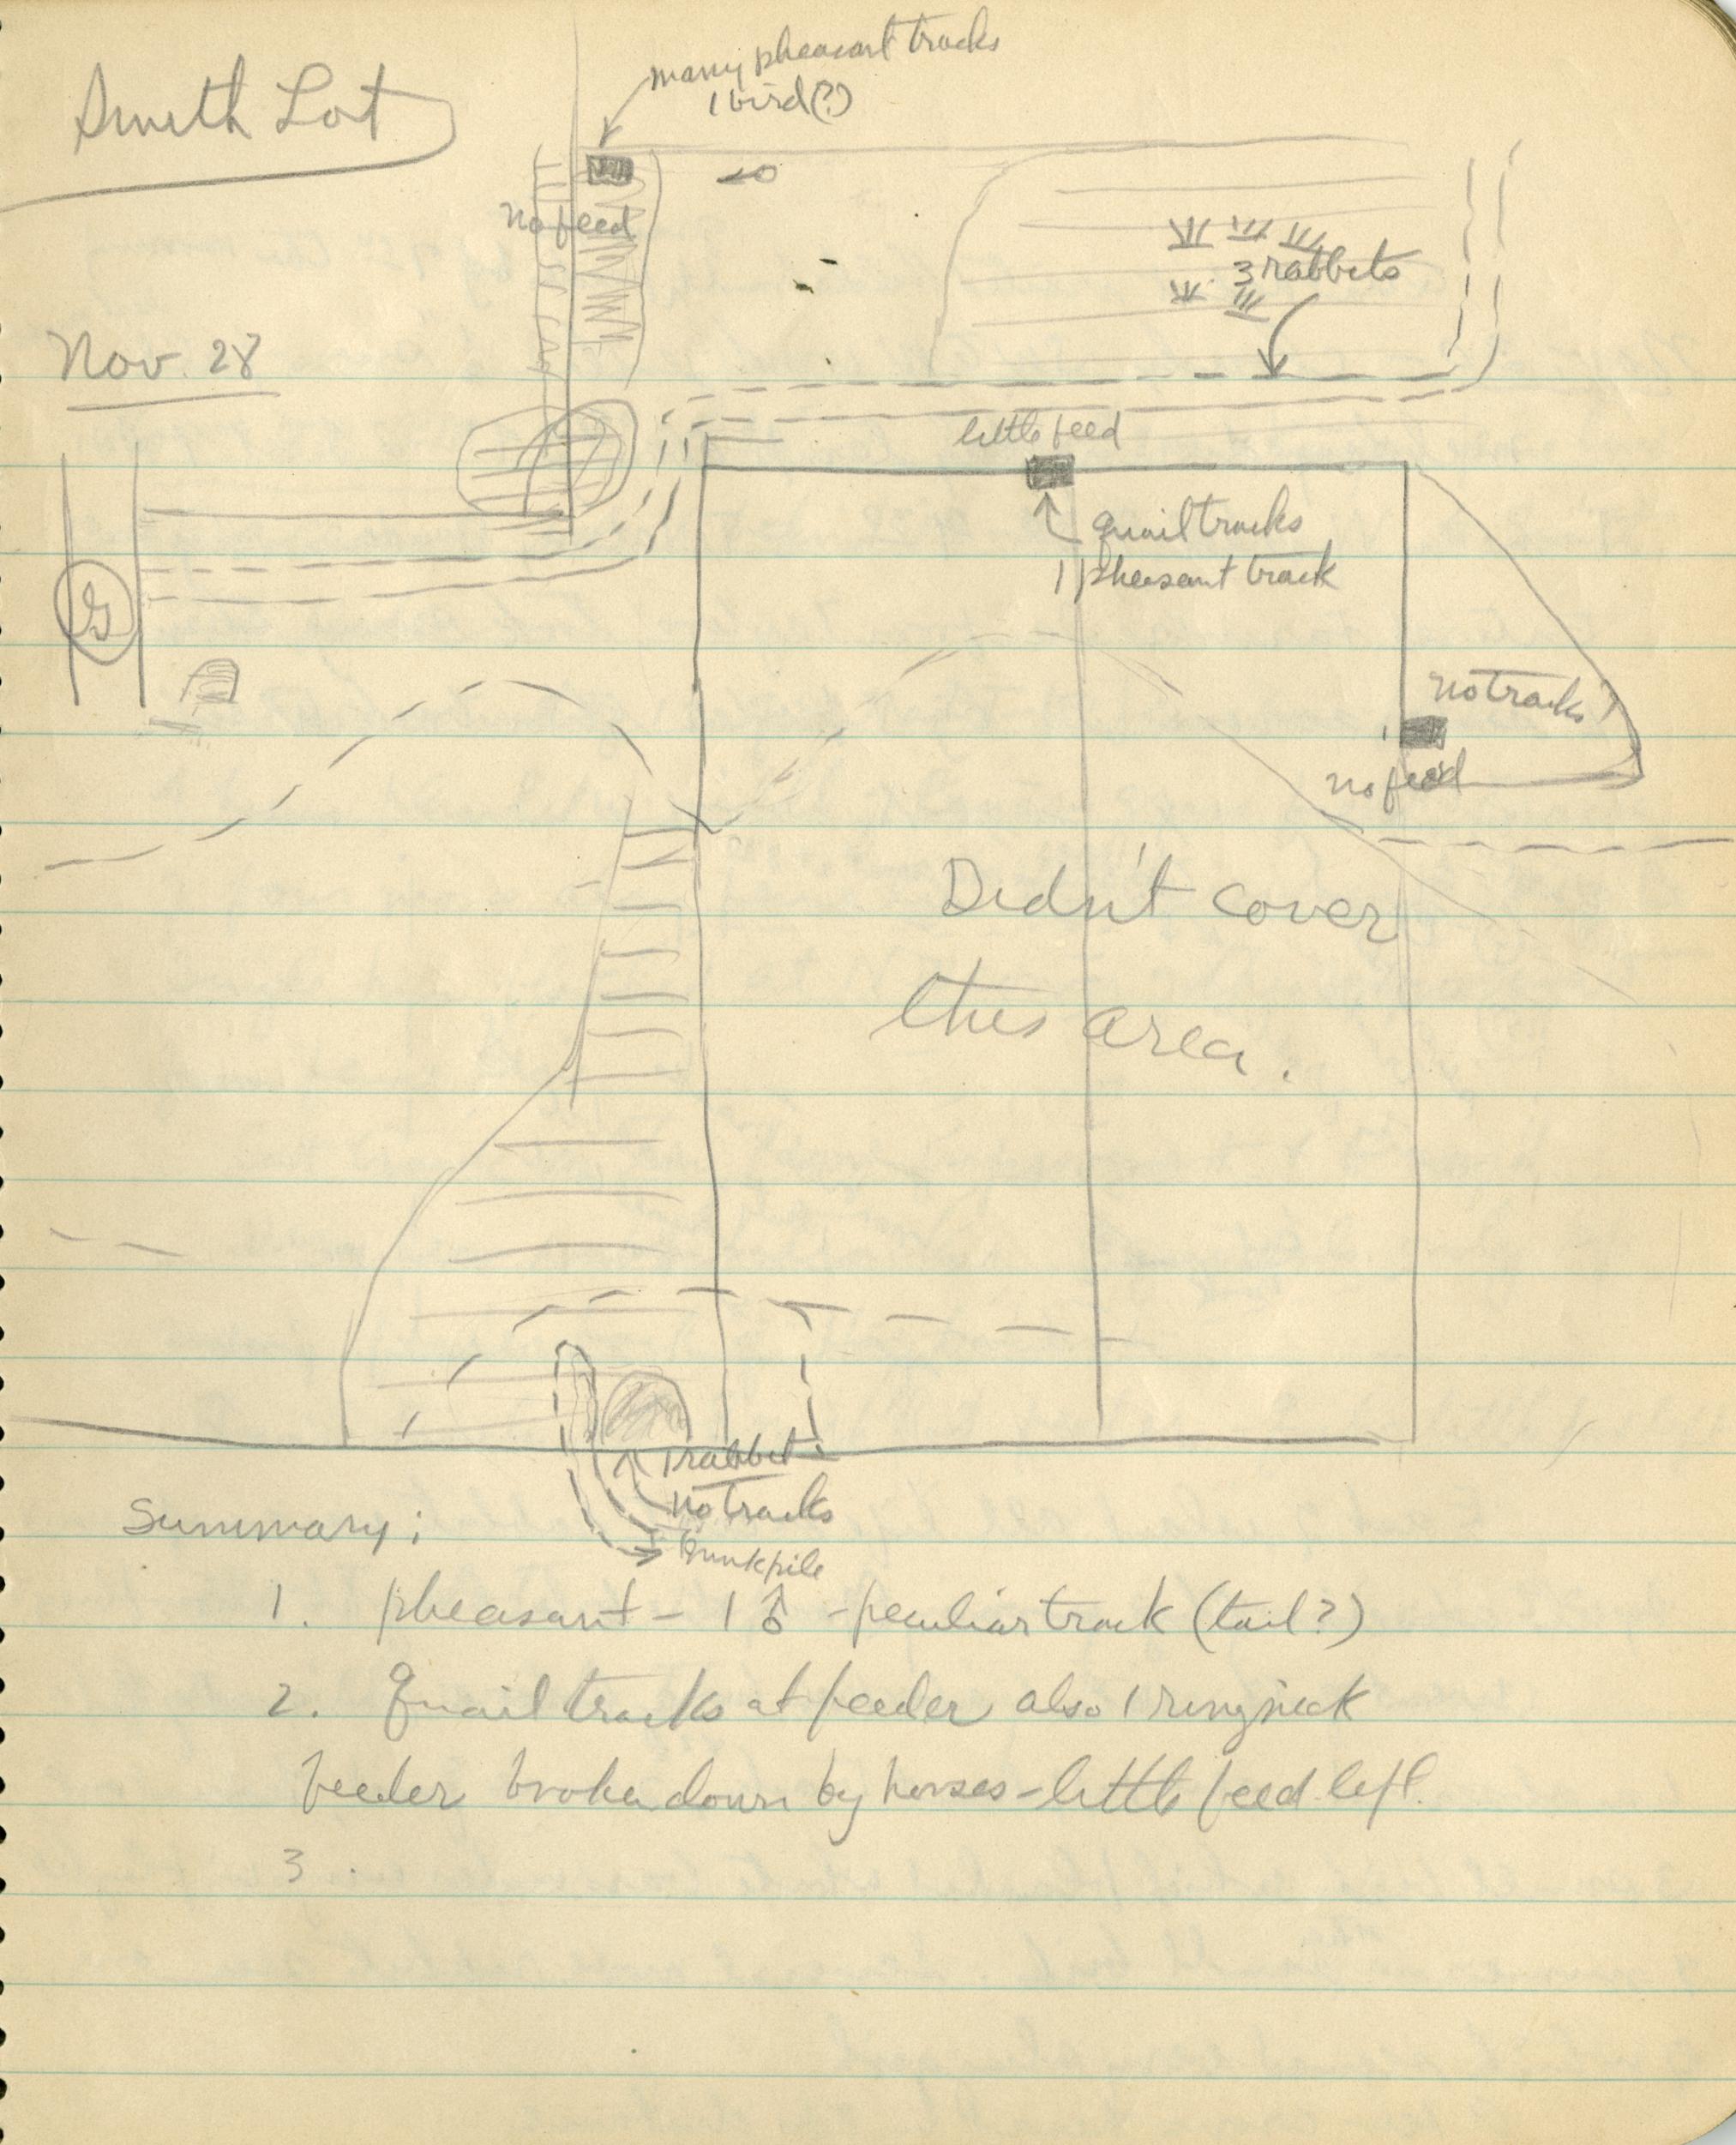 many pheasant tracks
1 bird(?)
Smith Lot
No feed
3 rabbits
Nov. 28
little feed
quail tracks
1 pheasant track
G
no tracks
no feed
Didn't cover
this area.
1 rabbit
no tracks
Junkpile
Summary:
1. pheasant - 1 ♂ - peculiar track (tail?)
2. Quail tracks at feeder also 1 ringneck
feeder broke down by horses - little feed left.
3.